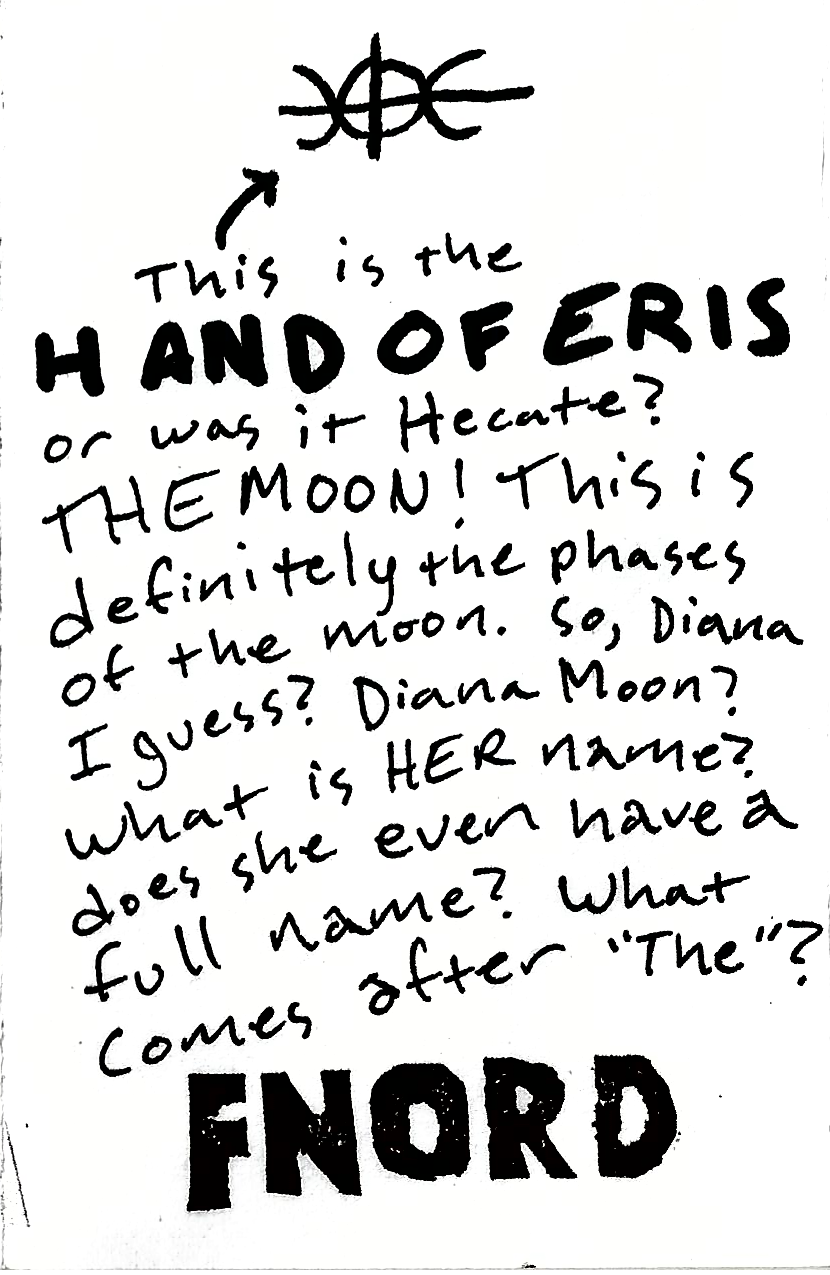 This is the
HAND OF ERIS
or was it Hecate?
THE MOON! This is
definitely the phases
of the moon. So, Diana
I guess? Diana Moon?
What is HER name?
does she even have a
full name? What
comes after "The"?
FNORD